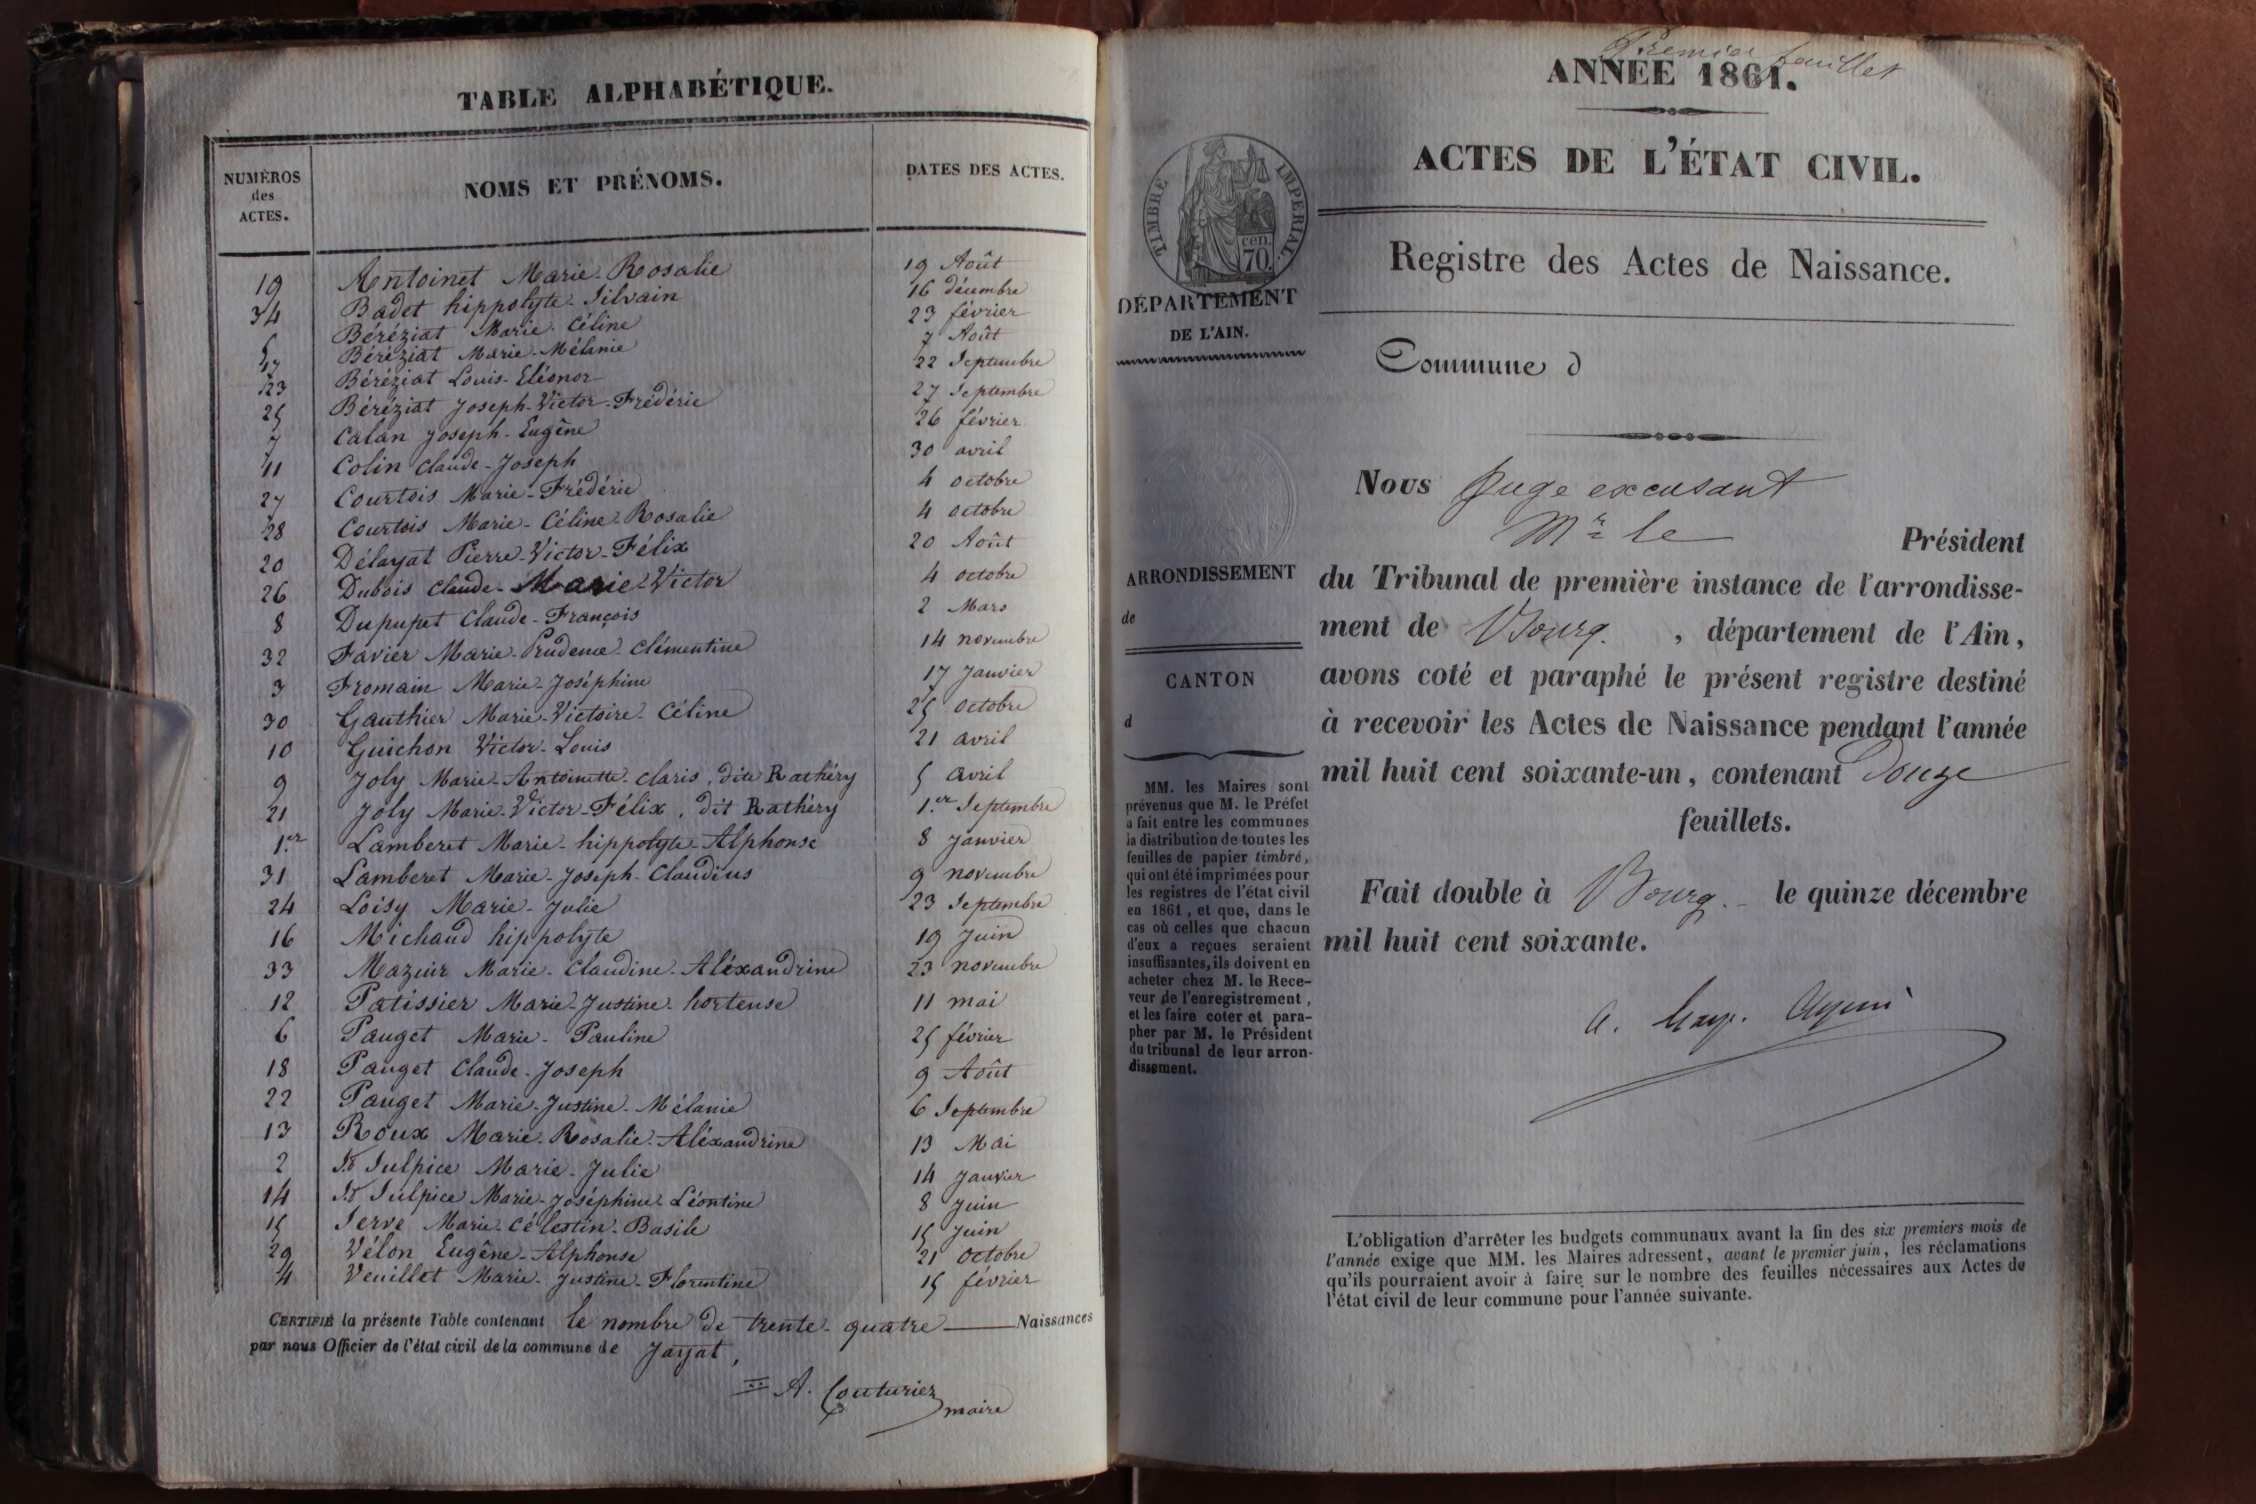 TABLE ALPHABÉTIQUE.
NUMÉROS des ACTES. NOMS ET PRÉNOMS. DATES DES ACTES.
19 Antoinet Marie-Rosalie 19 Août
34 Badet hippolyte-Silvain 16 décembre
5 Béréziat Marie-Céline 23 février
17 Béréziat Marie-Mélanie 7 Août
23 Béréziat Louis-Eléonor 22 Septembre
25 Béréziat Joseph-Victor-Frédéric 27 Septembre
7 Calan Joseph-Eugène 26 février
11 Colin Claude-Joseph 30 avril
27 Courtois Marie-Frédéric 4 octobre
28 Courtois Marie-Céline-Rosalie 4 octobre
20 Délayat Pierre-Victor-Félix 20 Août
26 Dubois Claude-Marie-Victor 4 octobre
8 Dupupet Claude-François 2 Mars
32 Favier Marie-Prudence-Clémentine 14 novembre
3 Fromain Marie-Joséphine 17 Janvier
30 Gauthier Marie-Victoire-Céline 25 octobre
10 Guichon Victor-Louis 21 avril
9 Joly Marie-Antoinette-Claris, dite Rathéry 5 avril
21 Joly Marie-Victor-Félix, dit Rathéry 1.er Septembre
1.er Lamberet Marie-hippolyte-Alphonse 8 Janvier
31 Lamberet Marie-Joseph-Claudius 9 novembre
24 Loisy Marie-Julie 23 Septembre
16 Michaud hippolyte 19 Juin
33 Mazuir Marie-Claudine-Aléxandrine 23 novembre
12 Patissier Marie-Justine-hortense 11 mai
6 Pauget Marie-Pauline 25 février
18 Pauget Claude-Joseph 9 Août
22 Pauget Marie-Justine-Mélanie 6 Septembre
13 Roux Marie-Rosalie-Aléxandrine 13 Mai
2 St Sulpice Marie-Julie 14 Janvier
14 St Sulpice Marie-Joséphine-Léontine 8 Juin
15 Serve Marie-Célestin-Basile 15 Juin
29 Vélon Eugène-Alphonse 21 octobre
4 Veuillet Marie-Justine-Florentine 15 février
CERTIFIÉ la présente Table contenant le nombre de trente-quatre Naissances
par nous Officier de l'état civil de la commune de Jayat,
A. Couturier
maire
Premier feuillet
ANNÉE 1861.
ACTES DE L'ÉTAT CIVIL.
TIMBRE IMPERIAL
cen.
70.
Registre des Actes de Naissance.
DÉPARTEMENT
DE L'AIN.
Commune d
Nous Juge excusant
Mr le Président
ARRONDISSEMENT
de
CANTON
d
du Tribunal de première instance de l'arrondisse-
ment de Bourg. , département de l'Ain,
avons coté et paraphé le présent registre destiné
à recevoir les Actes de Naissance pendant l'année
mil huit cent soixante-un, contenant Douze
feuillets.
Fait double à Bourg. le quinze décembre
mil huit cent soixante.
MM. les Maires sont
prévenus que M. le Préfet
a fait entre les communes
la distribution de toutes les
feuilles de papier timbré,
qui ont été imprimées pour
les registres de l'état civil
en 1861, et que, dans le
cas où celles que chacun
d'eux a reçues seraient
insuffisantes, ils doivent en
acheter chez M. le Rece-
veur de l'enregistrement,
et les faire coter et para-
pher par M. le Président
du tribunal de leur arron-
dissement.
L'obligation d'arrêter les budgets communaux avant la fin des six premiers mois de
l'année exige que MM. les Maires adressent, avant le premier juin, les réclamations
qu'ils pourraient avoir à faire sur le nombre des feuilles nécessaires aux Actes de
l'état civil de leur commune pour l'année suivante.